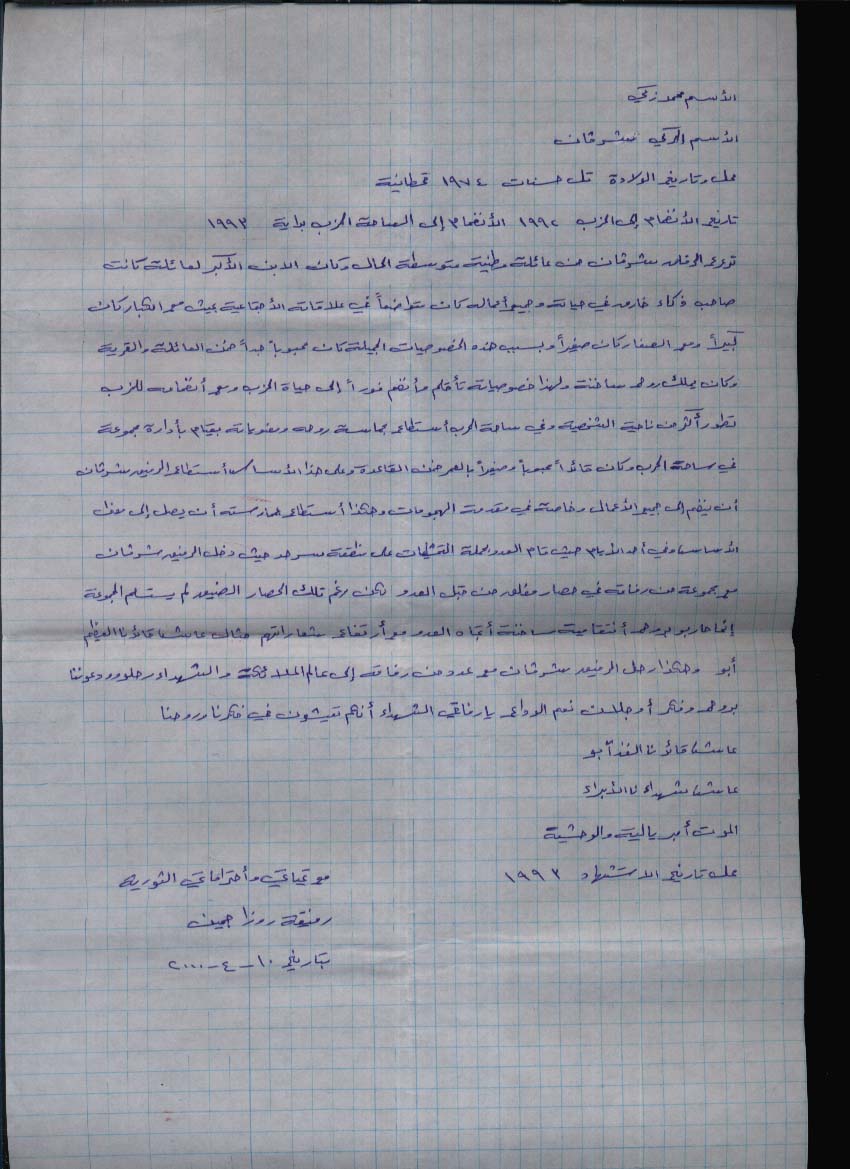 الأسم محمد زكي
الأسم الحركي شوقان
محل وتاريخ الولادة تل حسنات ١٩٧٤ قحطانية
تاريخ الأنضمام إلى الحزب ١٩٩٢ الأنضمام إلى الساحة الحرب بداية ١٩٩٣
ترعرع الرفيق شوقان من عائلة وطنية متوسطة الحال وكان الابن الأكبر لعائلة كانت
صاحب ذكاء خارق في حياته وجميع أعماله كان متواضعاً في علاقات الأجتماعية يعيش مع الكبار كان
كبيراً ومع الصغار كان صغيراً وبسبب هذه الخصوصيات الجميلة كان محبوباً جداً ضمن العائلة والقرية
وكان يملك روح ساخنة ولهذا خصوصياته تأقلم وأنضم فوراً إلى حياة الحزب ومع أنضمامه للحزب
تطور أكثر من ناحية الشخصية وفي ساحة الحرب أستطاع بحماسة روحه ومعنوياته بقيام بأدارة مجموعة
في ساحة الحرب وكان قائداً محبوباً وصغيراً بالعمر ضمن القاعدة وعلى هذا الأساس أستطاع الرفيق شوقان
أن ينضم إلى جميع الأعمال وخاصة في مقدمة الهجومات وهكذا أستطاع ممارسته أن يصل إلى
الأساس وفي أحد الأيام حيث قام العدو بحملة التمشيطات على منطقة سرحد حيث دخل الرفيق شوقان
مع مجموعة من رفاقه في حصار مغلق من قبل العدو لكن رغم تلك الحصار الضيق لم يستسلم المجموعة
إنما حاربو بروح أنتقامية ساخنة أتجاه العدو مع أرتفاع شعاراتهم مثال عاش قائدنا العظيم
أبو وهكذا رحل الرفيق شوقان مع عدد من رفاقه إلى عالم الملائكة والشهداء رحلوو ودعوننا
بروح وفكر أوجلان نعم الوداع يا رفاقي الشهداء أنكم تعيشون في فكرنا وروحنا
عاش قائدنا الفذ آبو
عاش شهداءنا الأبراء
الموت أمبريالية والوحشية
محل تاريخ الاستشهاد ١٩٩٣
مع تحياتي وأحتراماتي الثورية
رفيقة روزا جمين
بتاريخ ١٠-٤-٢٠٠٠